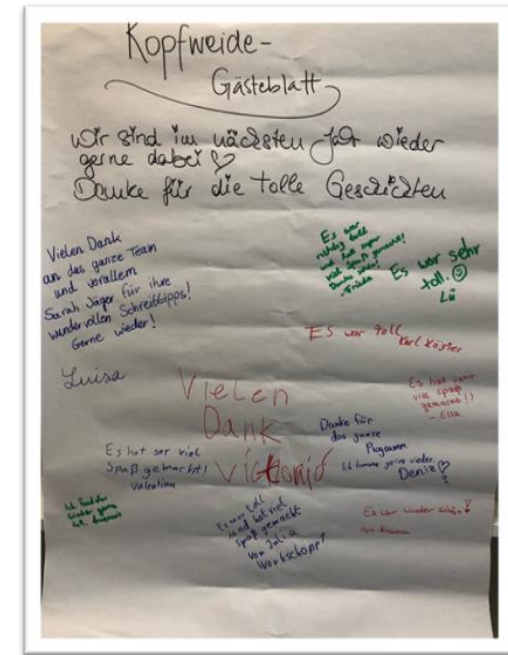 Kopfweide-
Gästeblatt
Wir sind im nächsten Jahr wieder
gerne dabei ♡
Danke für die tolle Geschichten
Vielen Dank
an das ganze Team
und vorallem
Sarah Jäger für ihre
wundervollen Schreibtipps!
Gerne wieder!
Es war
richtig toll
und hat super
viel Spaß gemacht!
Danke
Es war sehr
toll. ☺
Es war toll
Karl Köster
Luisa
Vielen
Dank
Victoria
Es hat sehr
viel spaß
gemacht!!
- Ella
Danke für
das ganze
Programm
Ich komme gerne wieder
Deniz ♡
Es hat ser viel
Spaß gemacht!
Valentina
Es war toll
und hat viel
spaß gemacht
von Julia
Workschope!
Es war wunder schön!
von